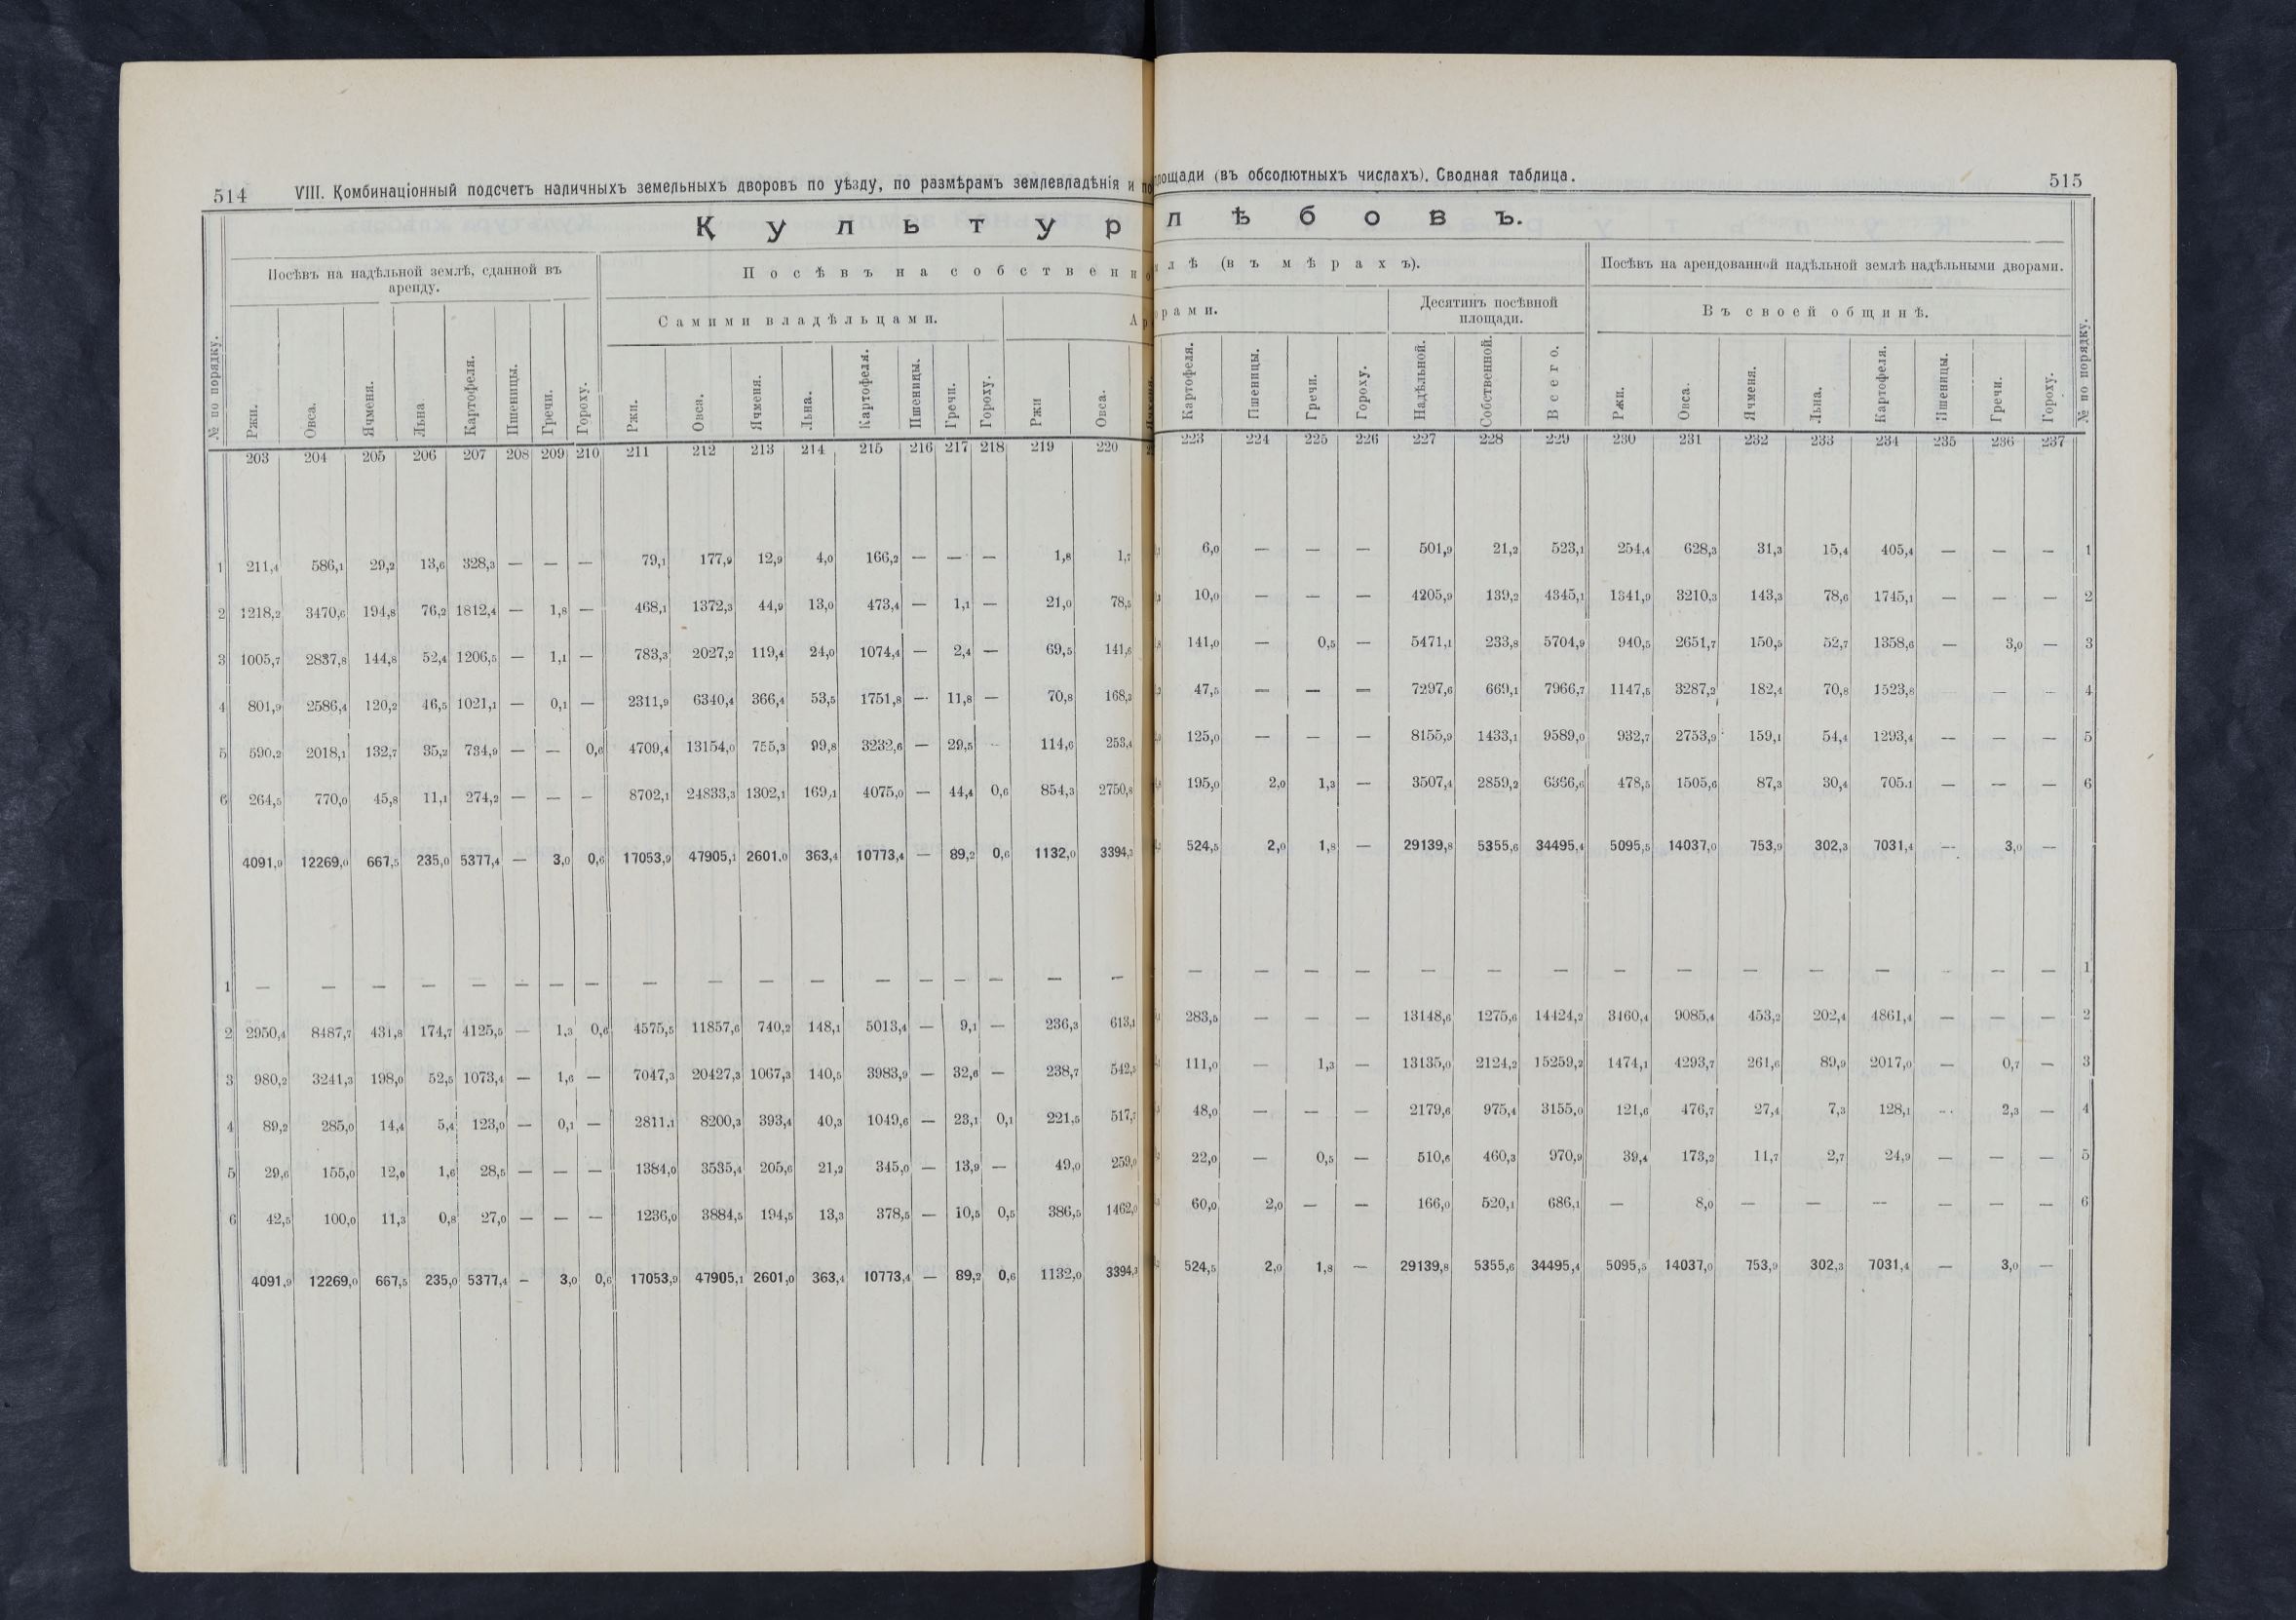 514 VIII. Комбинаціонный подсчетъ наличныхъ земельныхъ дворовъ по уѣзду, по размѣрамъ землевладѣнія и
Культур
Посѣвъ на надѣльной землѣ, сданной въ аренду.
Посѣвъ на собственно
Самими владѣльцами.
№ по порядку. Ржи. Овса. Ячменя. Льна Картофеля. Пшеницы. Гречи. Гороху. Ржи. Овса. Ячменя. Льна. Картофеля. Пшеницы. Гречи. Гороху. Ржи Овса.
203 204 205 206 207 208 209 210 211 212 213 214 215 216 217 218 219 220
1 211,4 586,1 29,2 13,6 328,3 — — — 79,1 177,9 12,9 4,0 166,2 — — — 1,8 1,7
2 1218,2 3470,6 194,8 76,2 1812,4 — 1,8 — 468,1 1372,3 44,9 13,0 473,4 — 1,1 — 21,0 78,5
3 1005,7 2837,8 144,8 52,4 1206,5 — 1,1 — 783,3 2027,2 119,4 24,0 1074,4 — 2,4 — 69,5 141,6
4 801,9 2586,4 120,2 46,5 1021,1 — 0,1 — 2311,9 6340,4 366,4 53,5 1751,8 — 11,8 — 70,8 168,3
5 590,2 2018,1 132,7 35,2 734,9 — — 0,6 4709,4 13154,0 755,3 99,8 3232,6 — 29,5 — 114,6 253,4
6 264,5 770,0 45,8 11,1 274,2 — — — 8702,1 24833,3 1302,1 169,1 4075,0 — 44,4 0,6 854,3 2750,8
4091,9 12269,0 667,5 235,0 5377,4 — 3,0 0,6 17053,9 47905,1 2601,0 363,4 10773,4 — 89,2 0,6 1132,0 3394,3
1 — — — — — — — — — — — — — — — — — —
2 2950,4 8487,7 431,8 174,7 4125,5 — 1,3 0,6 4575,5 11857,6 740,2 148,1 5013,4 — 9,1 — 236,3 613,1
3 980,2 3241,3 198,0 52,5 1073,4 — 1,6 — 7047,3 20427,3 1067,3 140,5 3983,9 — 32,6 — 238,7 542,5
4 89,2 285,0 14,4 5,4 123,0 — 0,1 — 2811,1 8200,3 393,4 40,3 1049,6 — 23,1 0,1 221,5 517,7
5 29,6 155,0 12,0 1,6 28,5 — — — 1384,0 3535,4 205,6 21,2 345,0 — 13,9 — 49,0 259,0
6 42,5 100,0 11,3 0,8 27,0 — — — 1236,0 3884,5 194,5 13,3 378,5 — 10,5 0,5 386,5 1462,0
4091,9 12269,0 667,5 235,0 5377,4 — 3,0 0,6 17053,9 47905,1 2601,0 363,4 10773,4 — 89,2 0,6 1132,0 3394,3
площади (въ обсолютныхъ числахъ). Сводная таблица. 515
лѣбовъ.
лѣ (въ мѣрахъ).
Посѣвъ на арендованной надѣльной землѣ надѣльными дворами.
орами.
Десятинъ посѣвной площади.
Въ своей общинѣ.
Картофеля. Пшеницы. Гречи. Гороху. Надѣльной. Собственной. Всего. Ржи. Овса. Ячменя. Льна. Картофеля. Пшеницы. Гречи. Гороху. № по порядку.
223 224 225 226 227 228 229 230 231 232 233 234 235 236 237
6,0 — — — 501,9 21,2 523,1 254,4 628,3 31,3 15,4 405,4 — — — 1
10,0 — — — 4205,9 139,2 4345,1 1341,9 3210,3 143,3 78,6 1745,1 — — — 2
141,0 — 0,5 — 5471,1 233,8 5704,9 940,5 2651,7 150,5 52,7 1358,6 — 3,0 — 3
47,5 — — — 7297,6 669,1 7966,7 1147,5 3287,2 182,4 70,8 1523,8 — — — 4
125,0 — — — 8155,9 1433,1 9589,0 932,7 2753,9 159,1 54,4 1293,4 — — — 5
195,0 2,0 1,3 — 3507,4 2859,2 6366,6 478,5 1505,6 87,3 30,4 705,1 — — — 6
524,5 2,0 1,8 — 29139,8 5355,6 34495,4 5095,5 14037,0 753,9 302,3 7031,4 — 3,0 —
— — — — — — — — — — — — — — — 1
283,5 — — — 13148,6 1275,6 14424,2 3460,4 9085,4 453,2 202,4 4861,4 — — — 2
111,0 — 1,3 — 13135,0 2124,2 15259,2 1474,1 4293,7 261,6 89,9 2017,0 — 0,7 — 3
48,0 — — — 2179,6 975,4 3155,0 121,6 476,7 27,4 7,3 128,1 — 2,3 — 4
22,0 — 0,5 — 510,6 460,3 970,9 39,4 173,2 11,7 2,7 24,9 — — — 5
60,0 2,0 — — 166,0 520,1 686,1 — 8,0 — — — — — — 6
524,5 2,0 1,8 — 29139,8 5355,6 34495,4 5095,5 14037,0 753,9 302,3 7031,4 — 3,0 —